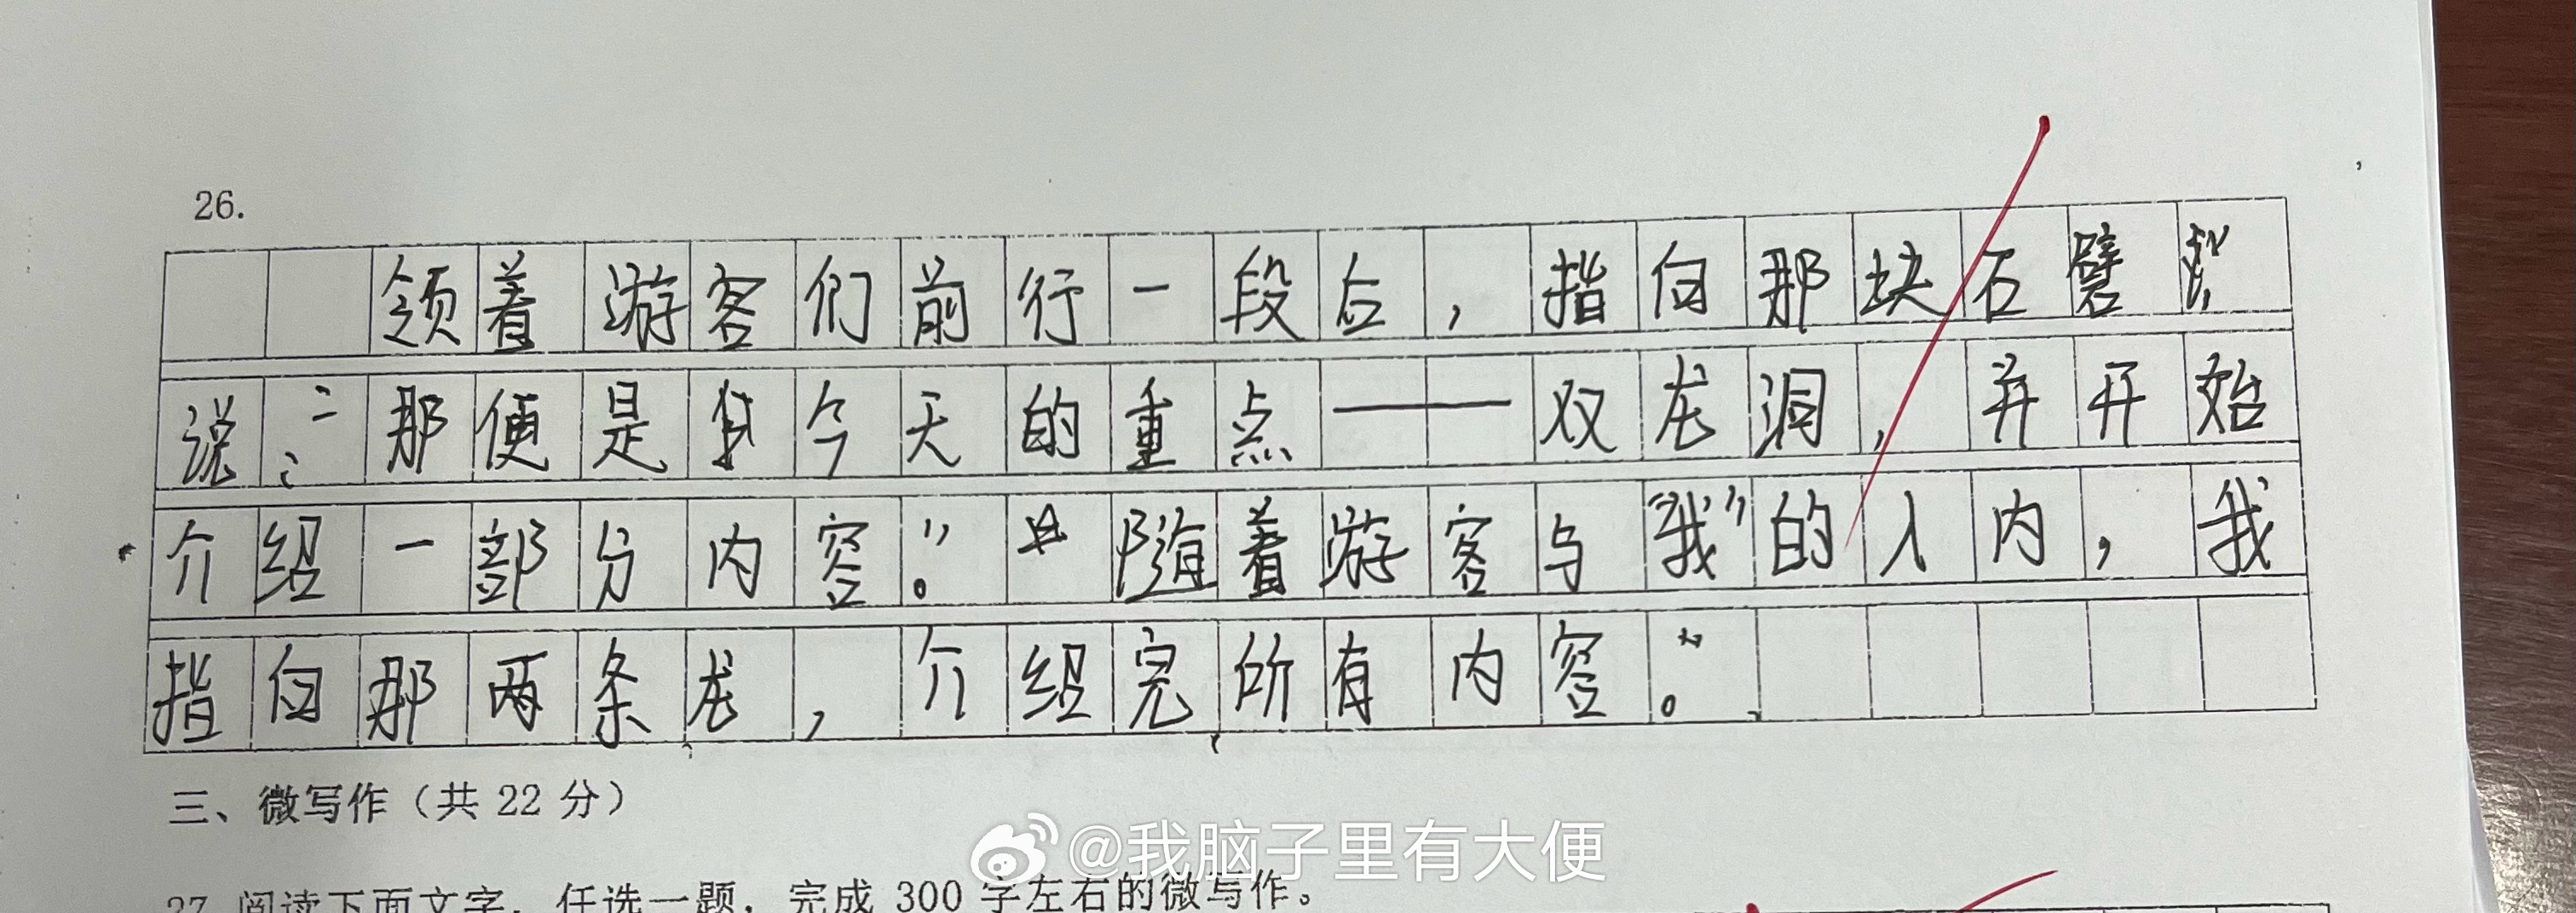 26.
领着游客们前行一段后，指向那块石壁
说：那便是我今天的重点——双龙洞，并开始
介绍一部分内容。”随着游客与“我”的入内，我
指向那两条龙，介绍完所有内容。
三、微写作（共 22 分）
@我脑子里有大便
27.阅读下面文字，任选一题，完成 300 字左右的微写作。